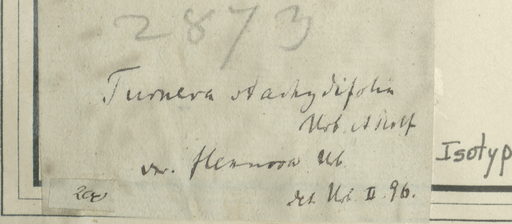 2873
Turnera stachydifolia
Urb. et Rolf
var. flexuosa Ub.
det. Urb. II 96.
Isotyp